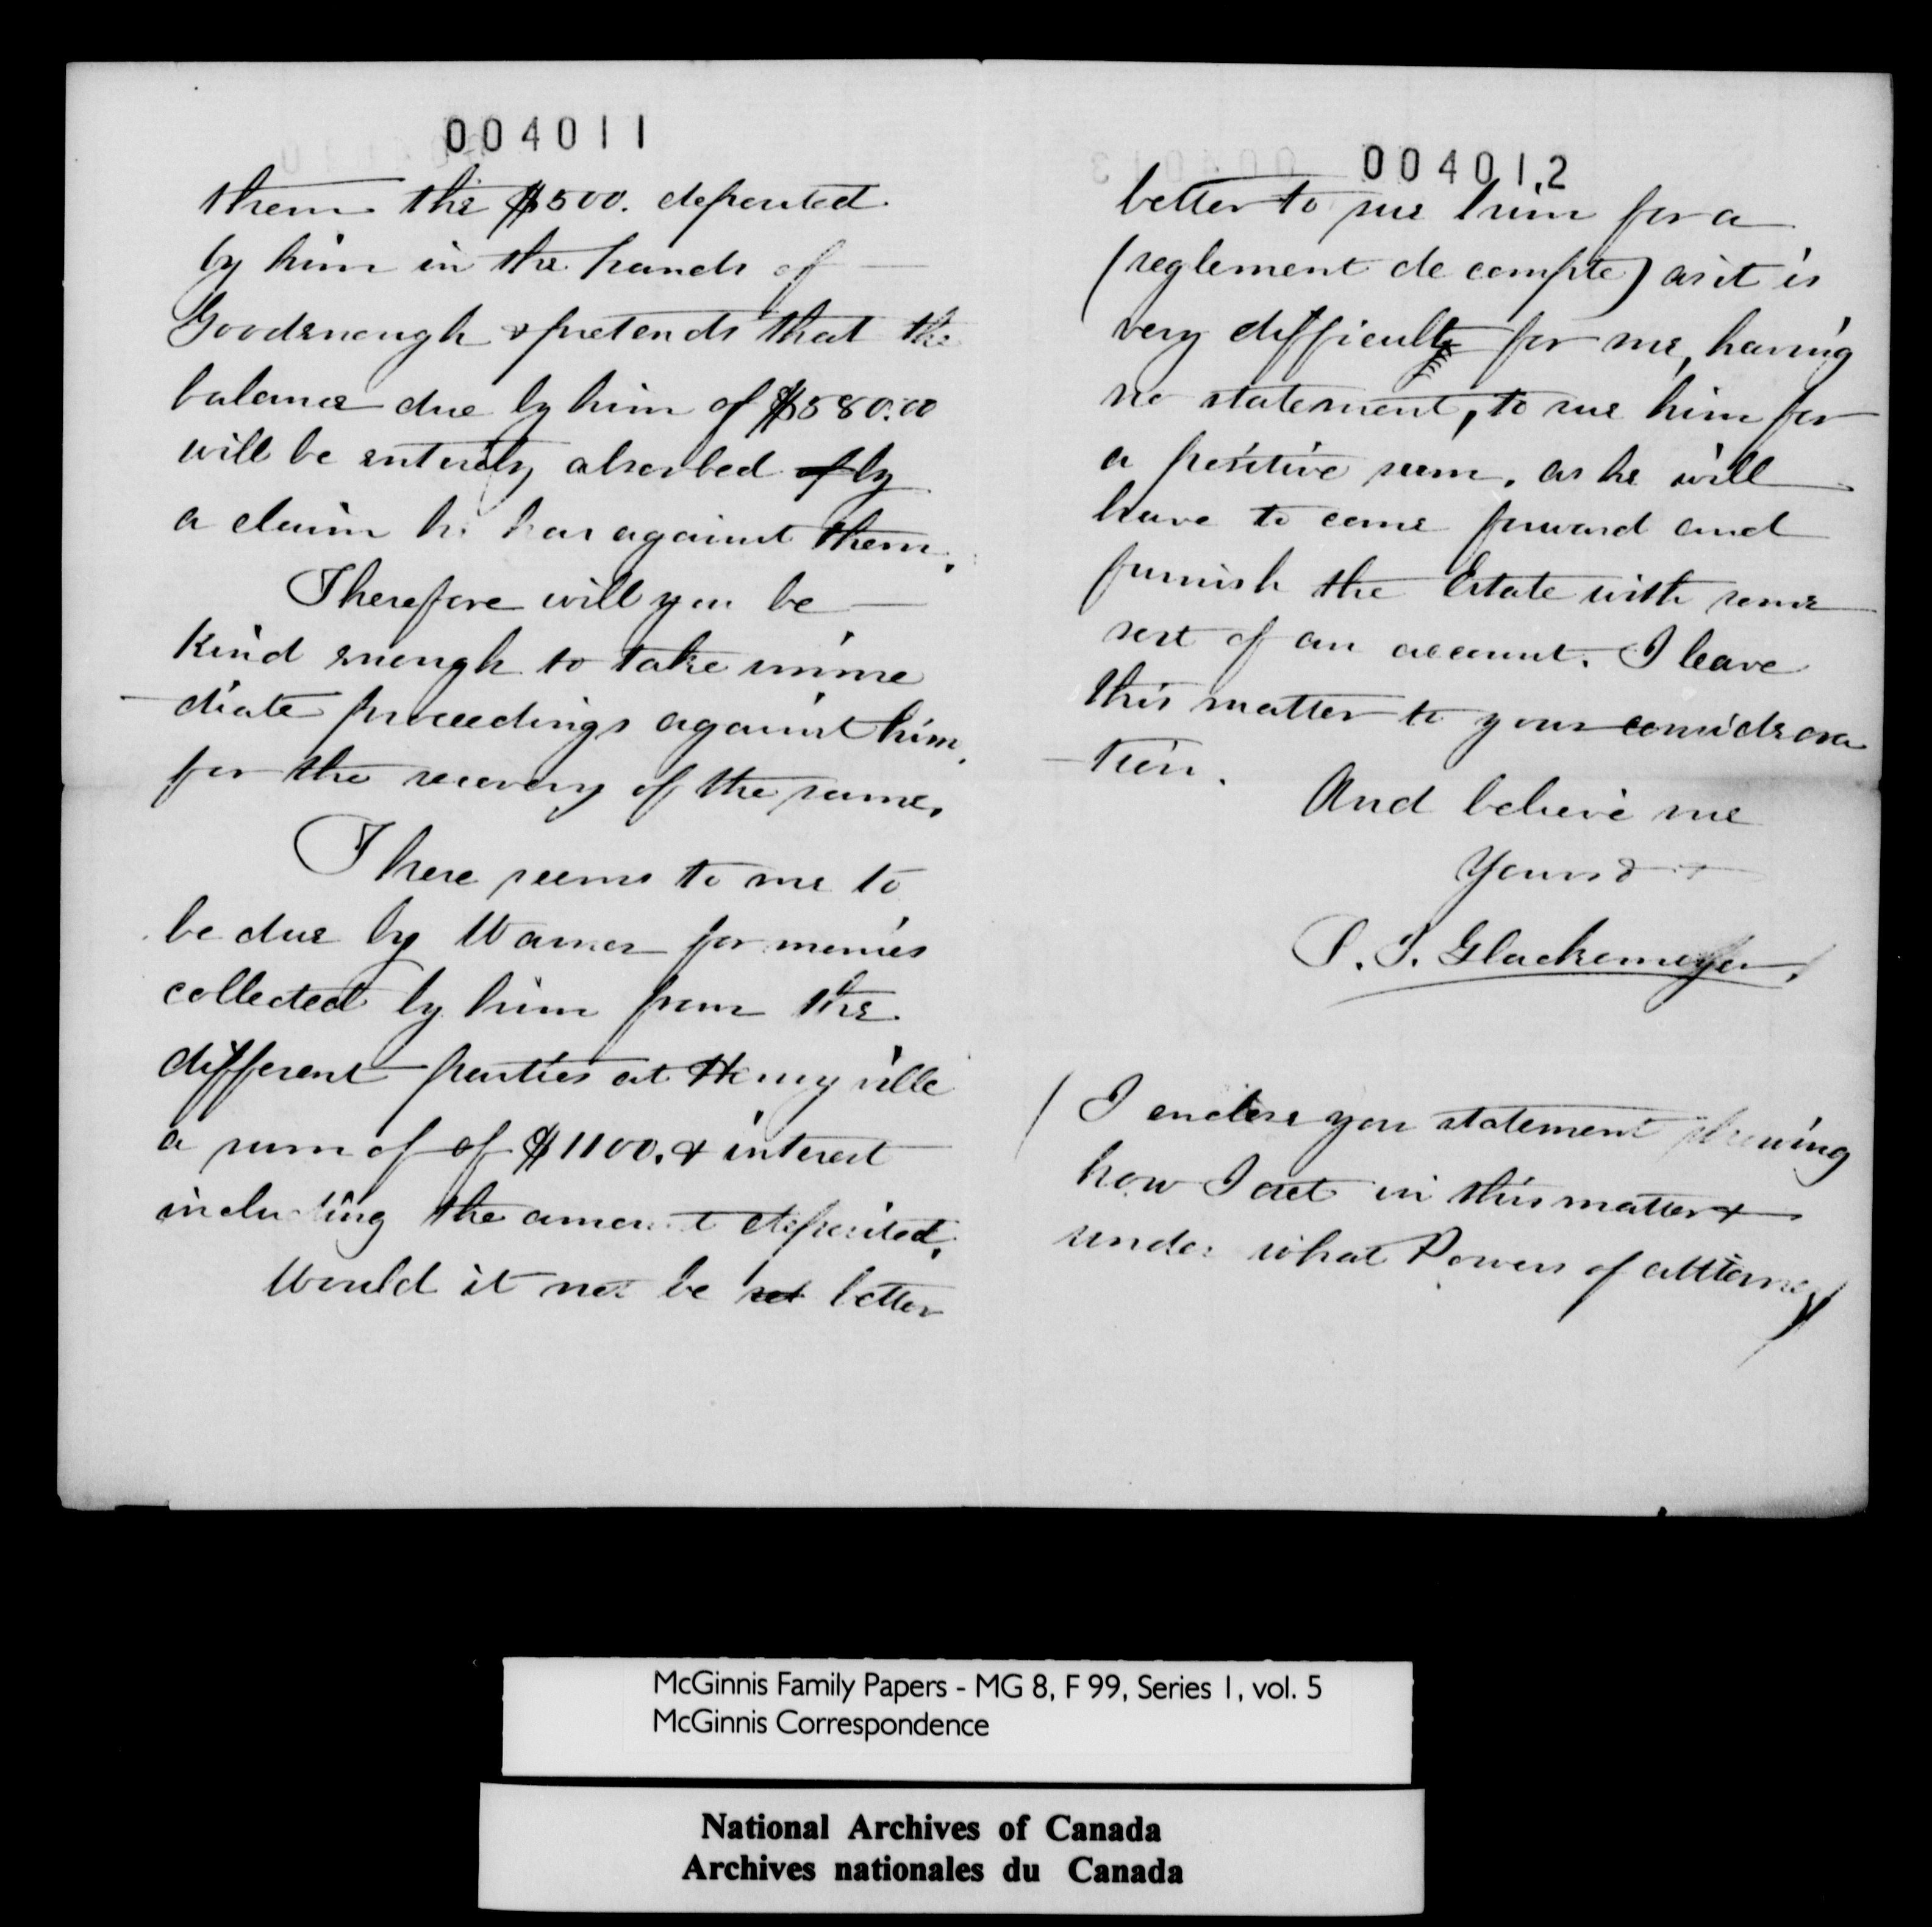 004011
them the $500. deposited
by him in the hands of —
Goodenough & pretends that the
balance due by him of $580.00
will be entirely absorbed of by
a claim he has against them.
Therefore will you be —
Kind enough to take imme
-diate proceedings against him,
for the recovery of the same.
There seems to me to
be due by Warner for monies
collected by him from the
different parties at Henryville
a sum of of $1100. & interest
including the amount deposited.
Would it not be not better
004012
better to sue him for a
(reglement de compte) as it is
very difficult for me, having
no statement, to sue him for
a positive sum, as he will
have to come forward and
furnish the Estate with some
sort of an account. I leave
this matter to your considera
-tion.
And believe me
Yours &
Glackemeyer.
(I enclose you statement showing
how I act in this matter &
under what Powers of attorney)
McGinnis Family Papers - MG 8, F 99, Series 1, vol. 5
McGinnis Correspondence
National Archives of Canada
Archives nationales du Canada